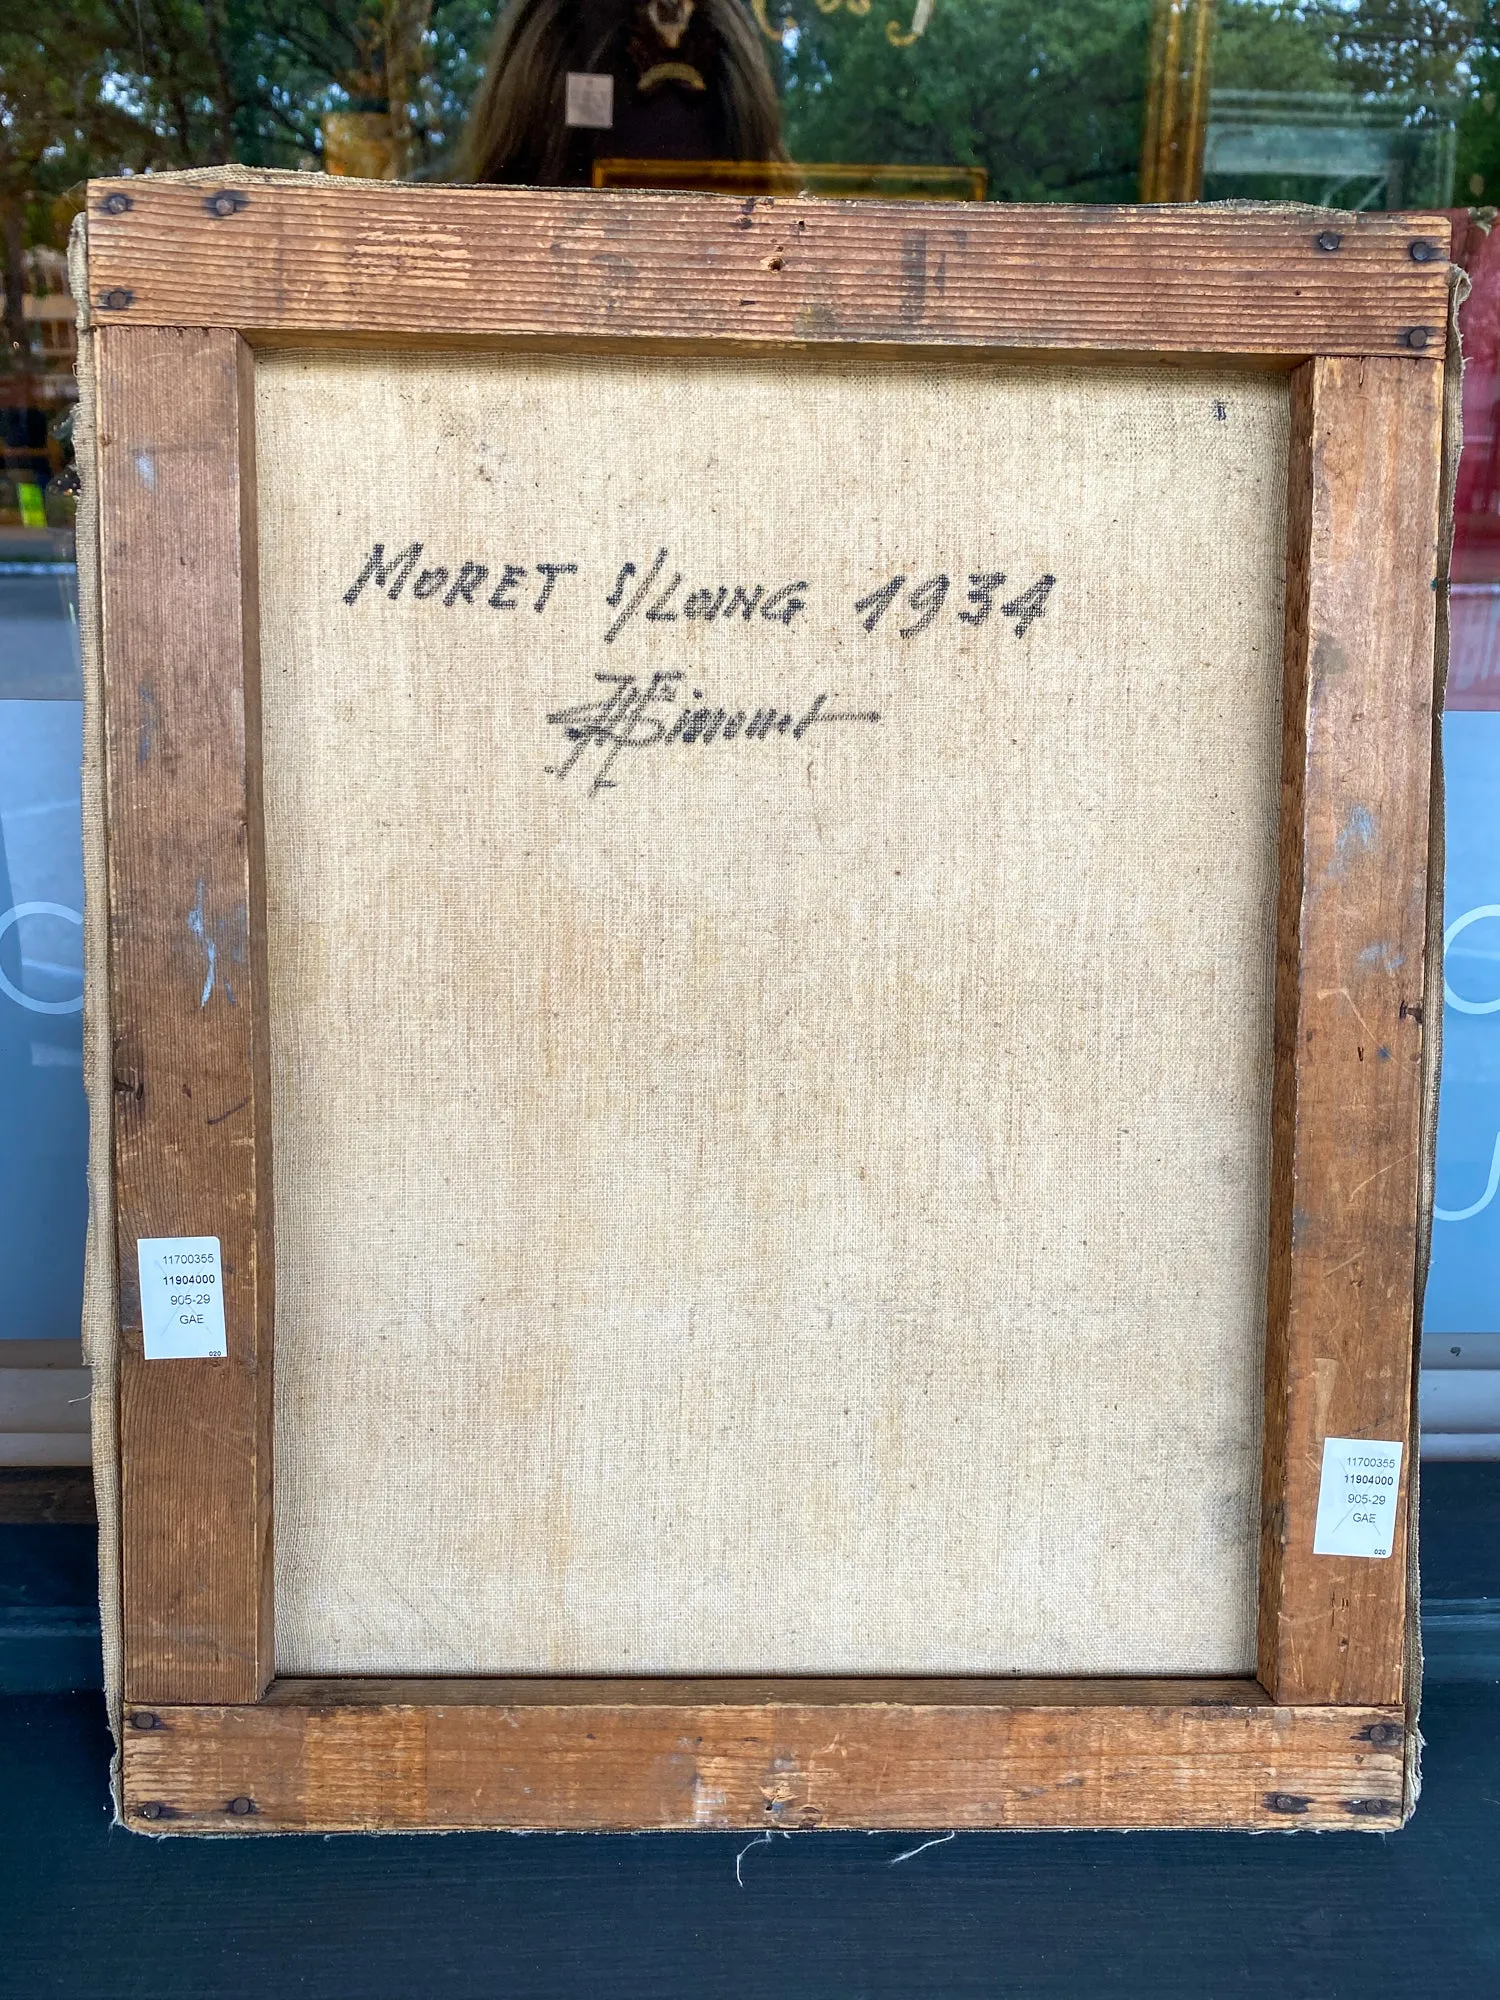 MORET S/LOING 1934
Simonet
11700355
11904000
905-29
GAE
020
11700355
11904000
905-29
GAE
020